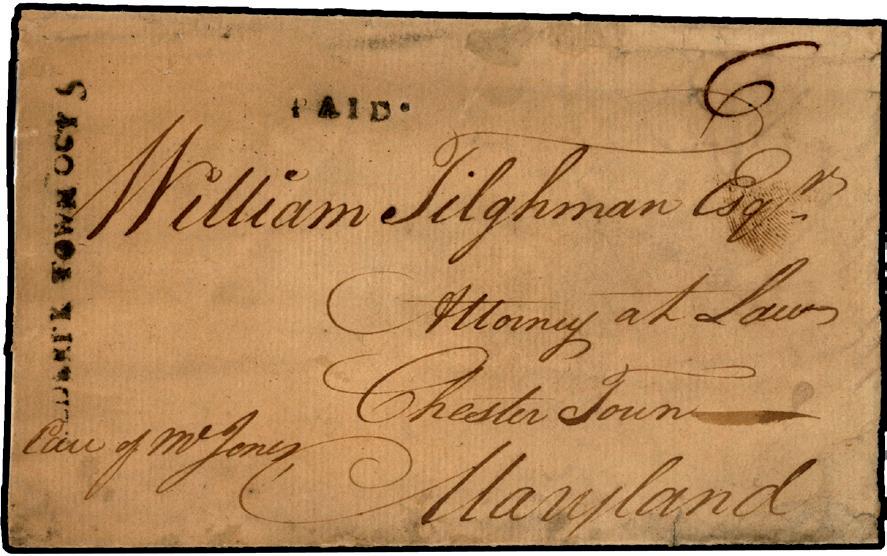 PAID.
6
TOWN OCT 5
William Tilghman Esqr
Attorney at Law
Chester Town
Care of Mr Jones
Maryland